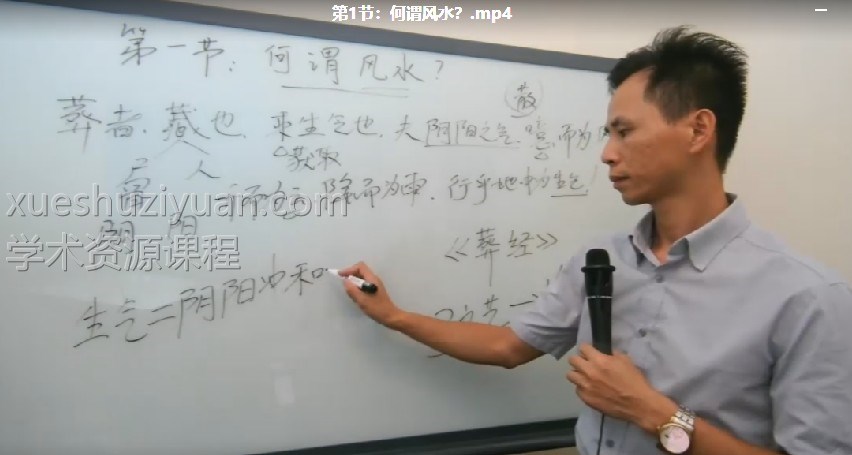 第1节：何谓风水？.mp4
第一节：何谓风水？
散
葬者，藏也，乘生气也，夫阴阳之气，噫而为
获取
人
而为云，降而为雨，行乎地中为生气！
阴 阳
《葬经》
生气二阴阳冲和
xueshuziyuan.com
学术资源课程